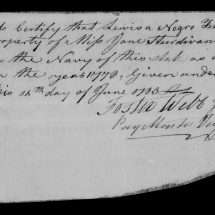 to Certify that Lewis a Negro
property of Miss Jane Sturdivan
in the Navy of this State as
in the year 1778. Given under
this 14th day of June 1783
Foster Webb
Pay Master